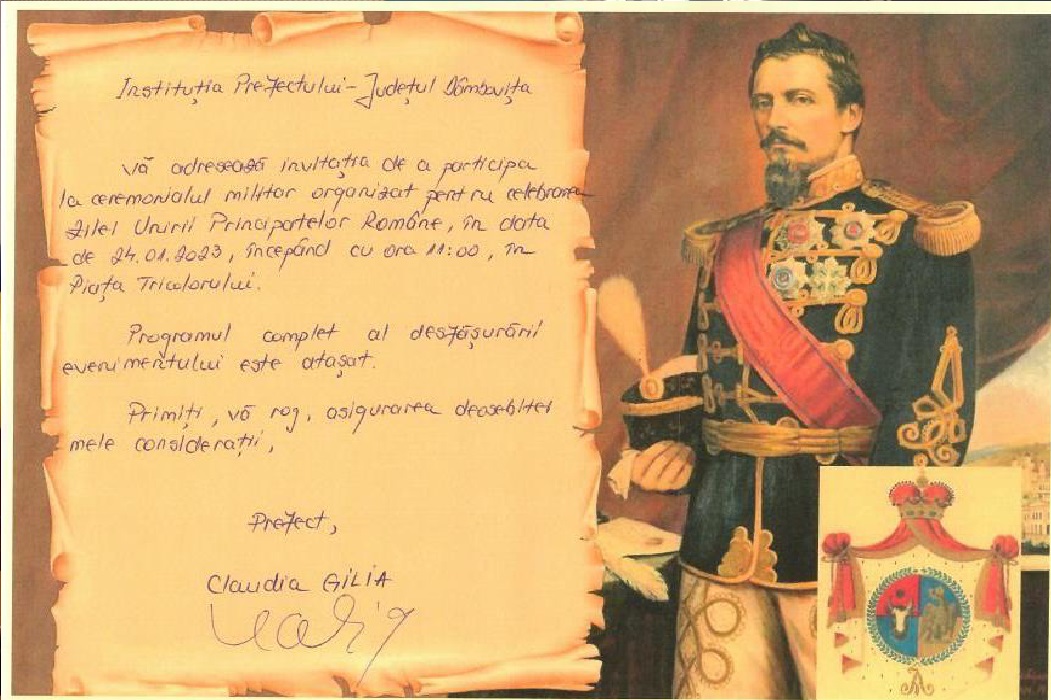 Instituția Prefectului - Județul Dâmbovița
Vă adresează invitația de a participa
la ceremonialul militar organizat pentru celebrarea
Zilei Unirii Principatelor Române, în data
de 24.01.2023, începând cu ora 11:00, în
Piața Tricolorului.
Programul complet al desfășurării
evenimentului este atașat.
Primiți, vă rog, asigurarea deosebitei
mele considerații,
Prefect,
Claudia GILIA